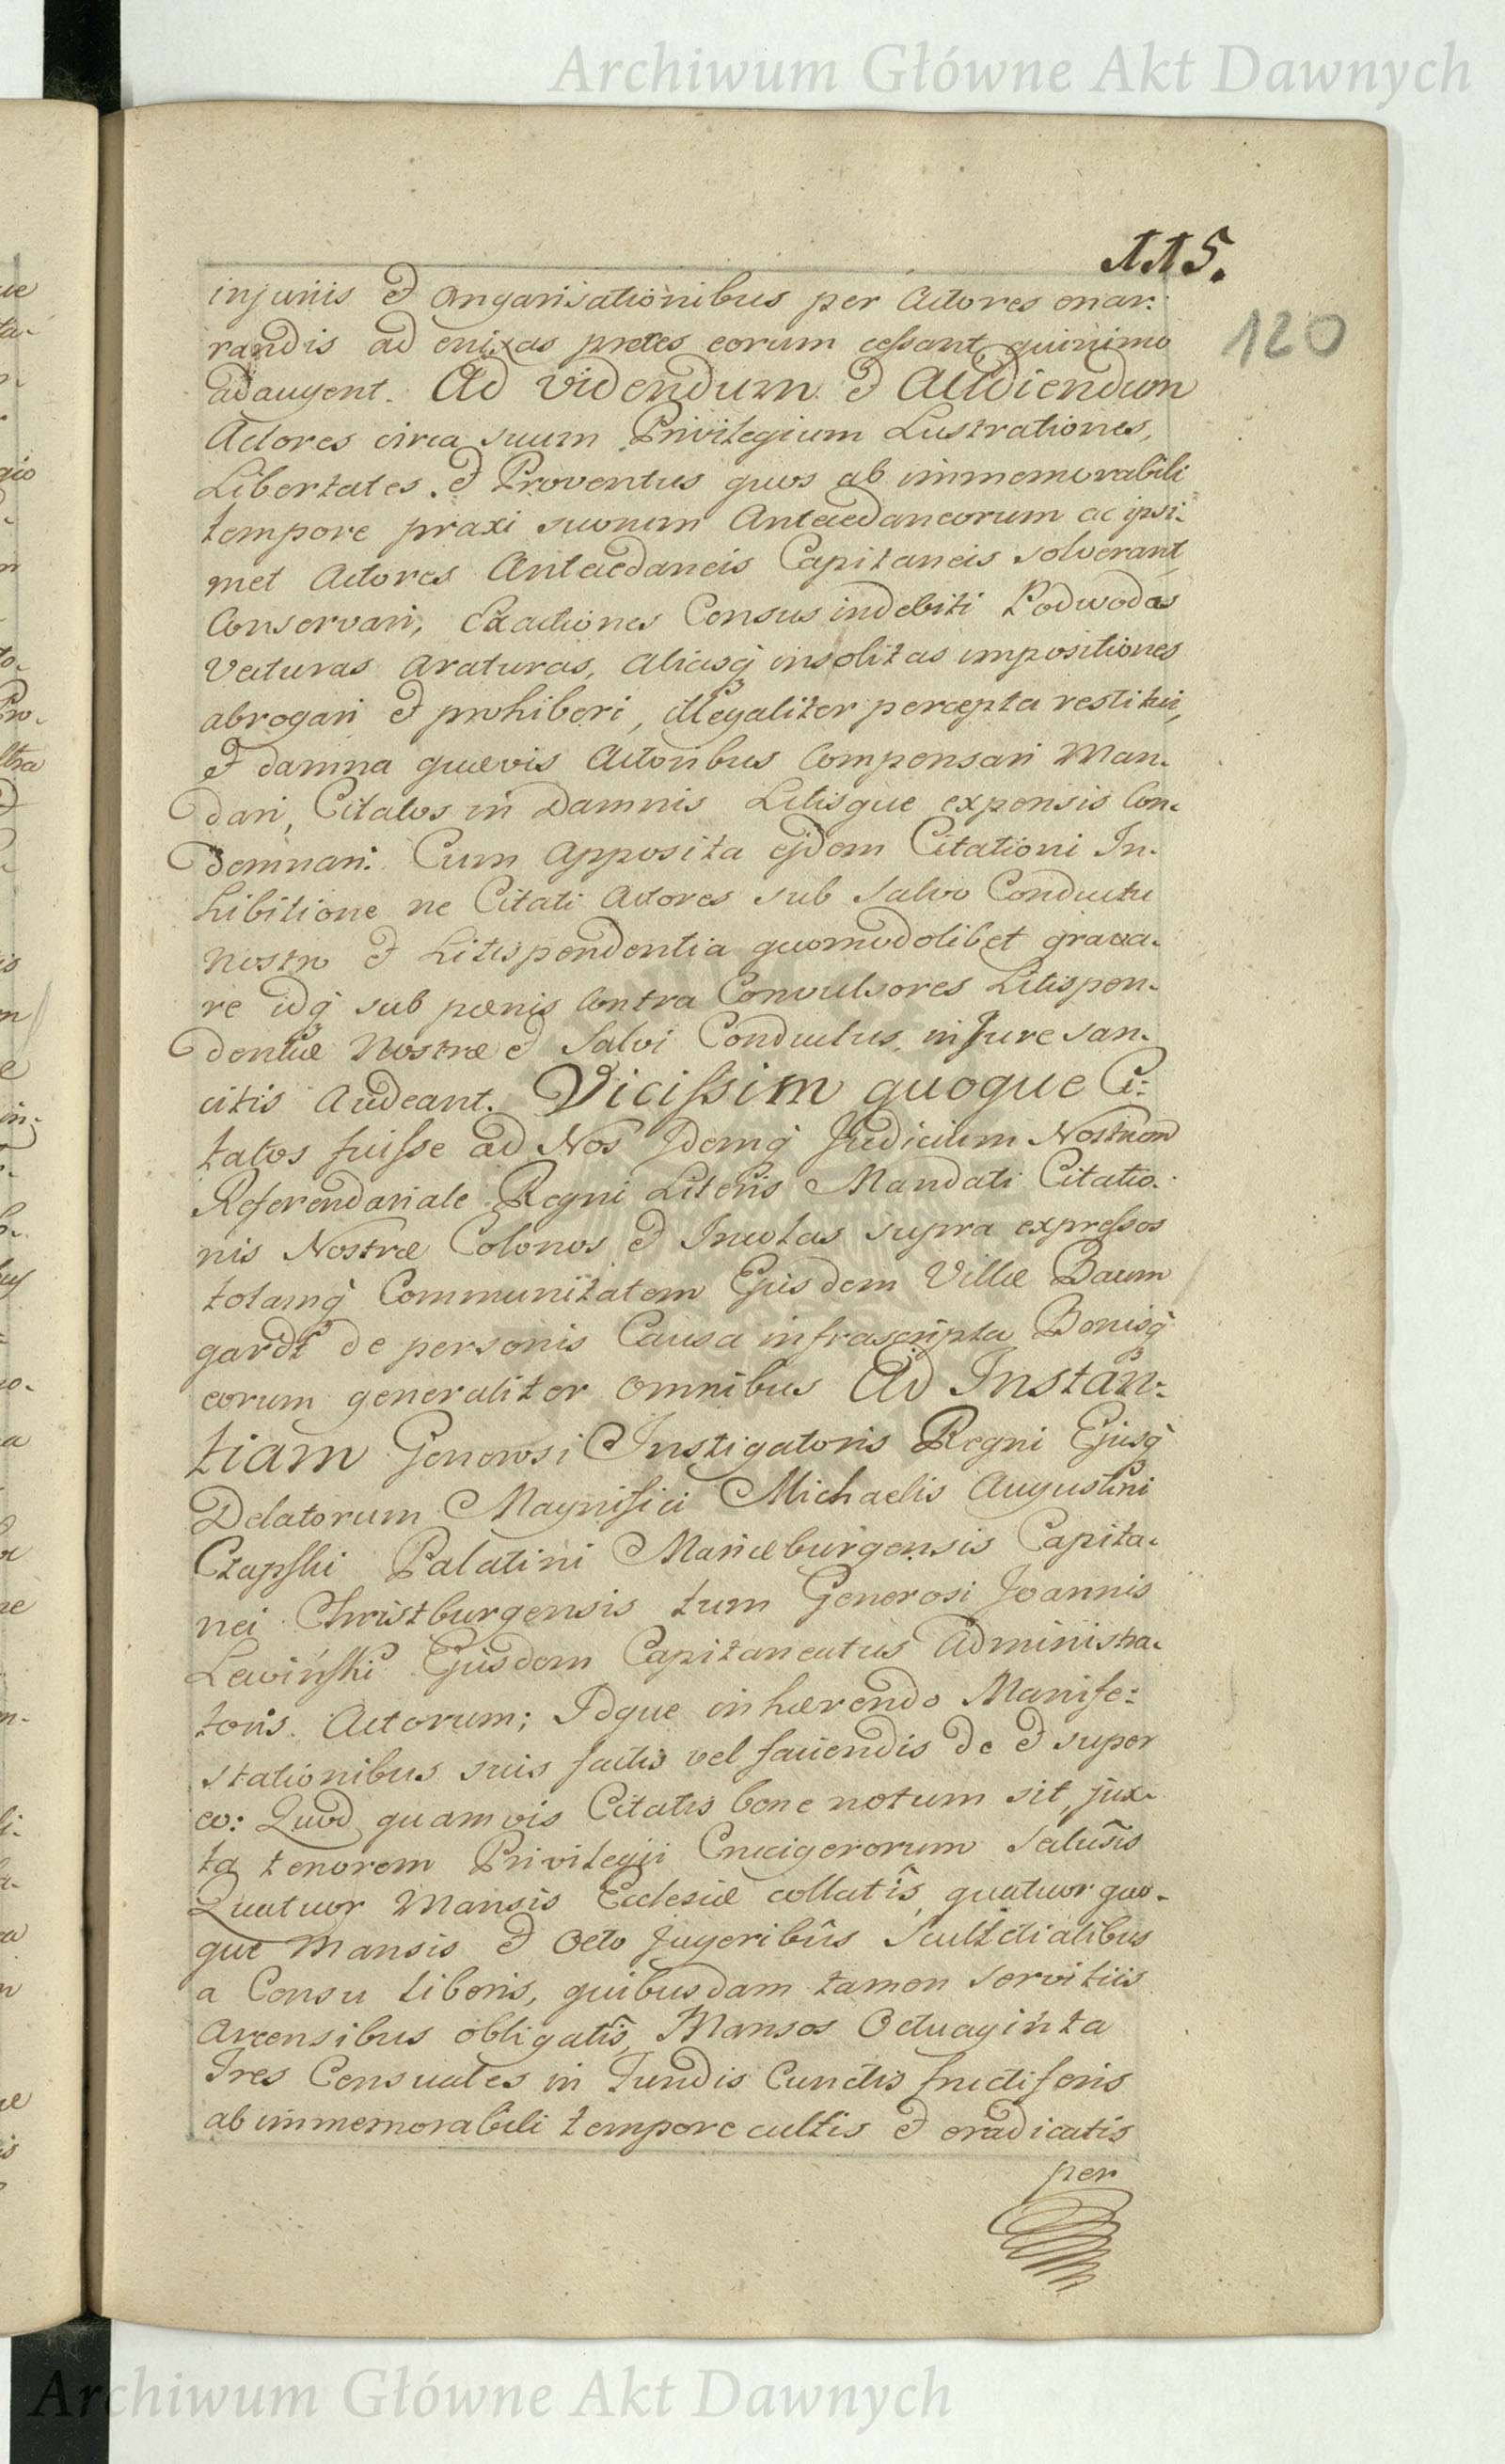 Archiwum Główne Akt Dawnych
115.
120
injuriis et Angarisationibus per Actores enar:
randis ad enixas preces eorum cessant, quinimo
adaugent. Ad Videndum et Audiendum
Actores circa suum Privilegium Lustrationes,
Libertates et Proventus quos ab immemorabili
tempore praxi suorum Antecedaneorum ac ipsi-
met Actores Antecedaneis Capitaneis solverant,
Conservari, Exactiones Census indebiti Podwodas
Vecturas Araturas, aliasq insolitas impositiones
abrogari et prohiberi, illegaliter percepta restitui,
et damna quævis Actoribus Compensari Man-
dari, Citatos in Damnis Litisque expensis Con-
demnari. Cum Apposita ejdem Citationi In-
hibitione ne Citati Actores sub Salvo Conductu
Nostro et Litispendentia quomodolibet grava-
re idq sub pœnis Contra Convulsores Litispen-
dentiæ Nostræ et Salvi Conductus in Jure san-
citis Audeant. Vicissim quoque Ci:
tatos fuisse ad Nos Idemq Judicium Nostrum
Referendariale Regni Literis Mandati Citatio-
nis Nostræ Colonos et Incolas supra expressos
totamq Communitatem Ejusdem Villæ Baum
gardt de personis Causa infrascripta Bonisq
eorum generaliter omnibus Ad Instan:
tiam Generosi Instigatoris Regni Ejusq
Delatorum Magnifici Michaelis Augustini
Czapski Palatini Mariæburgensis Capita-
nei Christburgensis tum Generosi Joannis
Lewiński Ejusdem Capitaneatus Administra-
toris. Actorum; Idque inhærendo Manife:
stationibus suis factis vel faciendis de et super
eo: Quod, quamvis Citatis bene notum sit, jux-
ta tenorem Privilegii Crucigerorum Salvis
Quatuor Mansis Ecclesiæ collatis, quatuor quo-
que Mansis et Octo Jugeribus Scultetialibus
a Censu liberis, quibusdam tamen servitiis
Arcensibus obligatis, Mansos Octuaginta
Tres Censuales in Fundis Cunctis fructiferis
ab immemorabili tempore cultis et eradicatis
per
Archiwum Główne Akt Dawnych